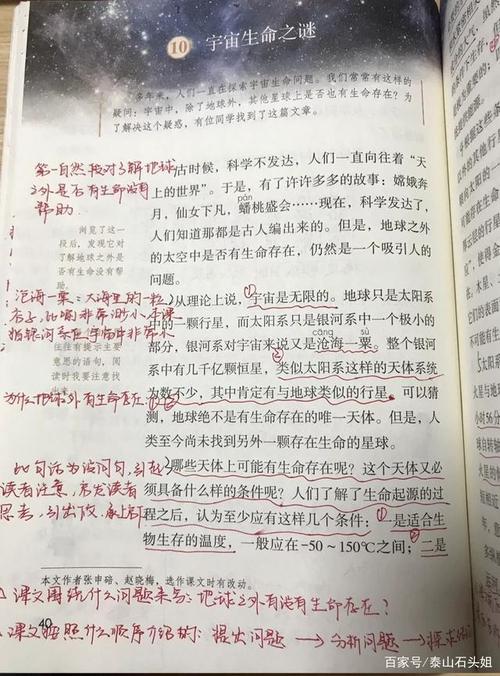 10 宇宙生命之谜
多年来，人们一直在探索宇宙生命问题。我们常常有这样的
疑问：宇宙中，除了地球外，其他星球上是否也有生命存在？为
了解决这个疑惑，有位同学找到了这篇文章。
第一自然段对了解地球
之外是否有生命没有
帮助.
古时候，科学不发达，人们一直向往着“天
上的世界”。于是，有了许许多多的故事：嫦娥奔
pán
月，仙女下凡，蟠桃盛会……现在，科学发达了，
人们知道那都是古人编出来的。但是，地球之外
的太空中是否有生命存在，仍然是一个吸引人的
问题。
浏览了这一
段后，发现它对
了解地球之外是
否有生命没有帮
助。
沧海一粟：大海里的一粒
谷子，比喻非常渺小.本课
指银河系在宇宙中非常小
往往有提示主要
意思的语句，阅
读时我要注意找
从理论上说，①宇宙是无限的。地球只是太阳系
中的一颗行星，而太阳系只是银河系中一个极小的
cāng sù
部分，银河系对宇宙来说又是沧海一粟。整个银河
系中有几千亿颗恒星，②类似太阳系这样的天体系统
为数不少，其中肯定有与地球类似的行星。可以猜
测，地球绝不是有生命存在的唯一天体。但是，人
类至今尚未找到另外一颗存在生命的星球。
为什么地球之外有生命存在①②
哪些天体上可能有生命存在呢？这个天体又必
须具备什么样的条件呢？人们了解了生命起源的过
程之后，认为至少应有这样几个条件：①一是适合生
物生存的温度，一般应在-50～150℃之间；②二是
此句话为设问句，引起
读者注意，启发读者
思考，引出下段，承上启下
本文作者张申碚、赵晓梅，选作课文时有改动。
课文围绕什么问题来写：地球之外有没有生命存在？
40
课文按照什么顺序介绍的：提出问题 → 分析问题 → 探求结论
百家号/泰山石头姐